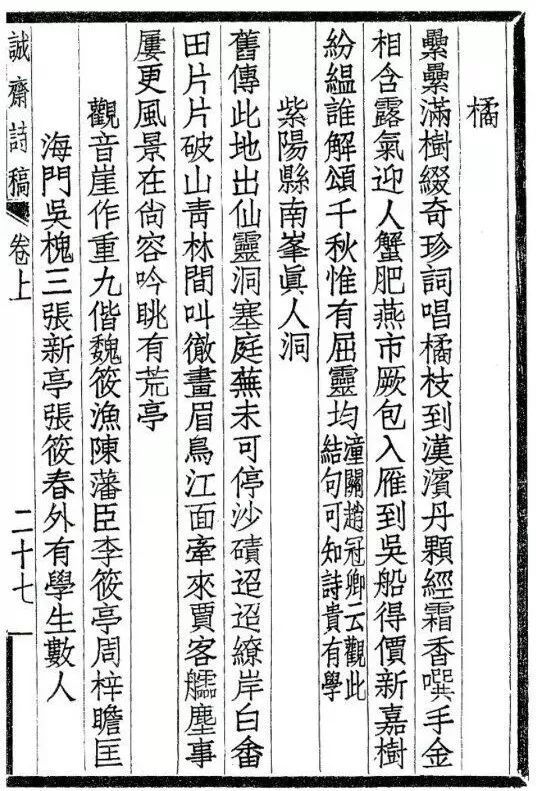 橘
纍纍滿樹綴奇珍詞唱橘枝到漢濱丹顆經霜香噀手金
相含露氣迎人蟹肥燕市厥包入雁到吳船得價新嘉樹
紛緼誰解頌千秋惟有屈靈均
潼關趙冠卿云觀此
結句可知詩貴有學
紫陽縣南峯眞人洞
舊傳此地出仙靈洞塞庭蕪未可停沙磧迢迢繚岸白畬
田片片破山靑林間叫徹畫眉鳥江面牽來賈客塵事
屢更風景在尙容吟眺有荒亭
觀音崖作重九偕魏筱漁陳藩臣李筱亭周梓瞻匡
海門吳槐三張新亭張筱春外有學生數人
誠齋詩稿
卷上
二十七